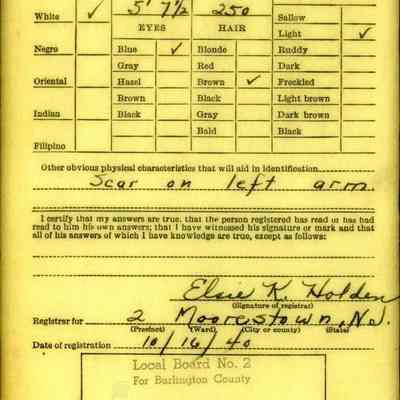 White ✓ 5' 7½ 250 Sallow
EYES HAIR Light ✓
Negro Blue ✓ Blonde Ruddy
Gray Red Dark
Oriental Hazel Brown ✓ Freckled
Brown Black Light brown
Indian Black Gray Dark brown
Bald Black
Filipino
Other obvious physical characteristics that will aid in identification
Scar on left arm.
I certify that my answers are true; that the person registered has read or has had
read to him his own answers; that I have witnessed his signature or mark and that
all of his answers of which I have knowledge are true, except as follows:
Elsie K. Holden
(Signature of registrar)
Registrar for 2 Moorestown, N.J.
(Precinct) (Ward) (City or county) (State)
Date of registration 10/16/40
Local Board No. 2
For Burlington County